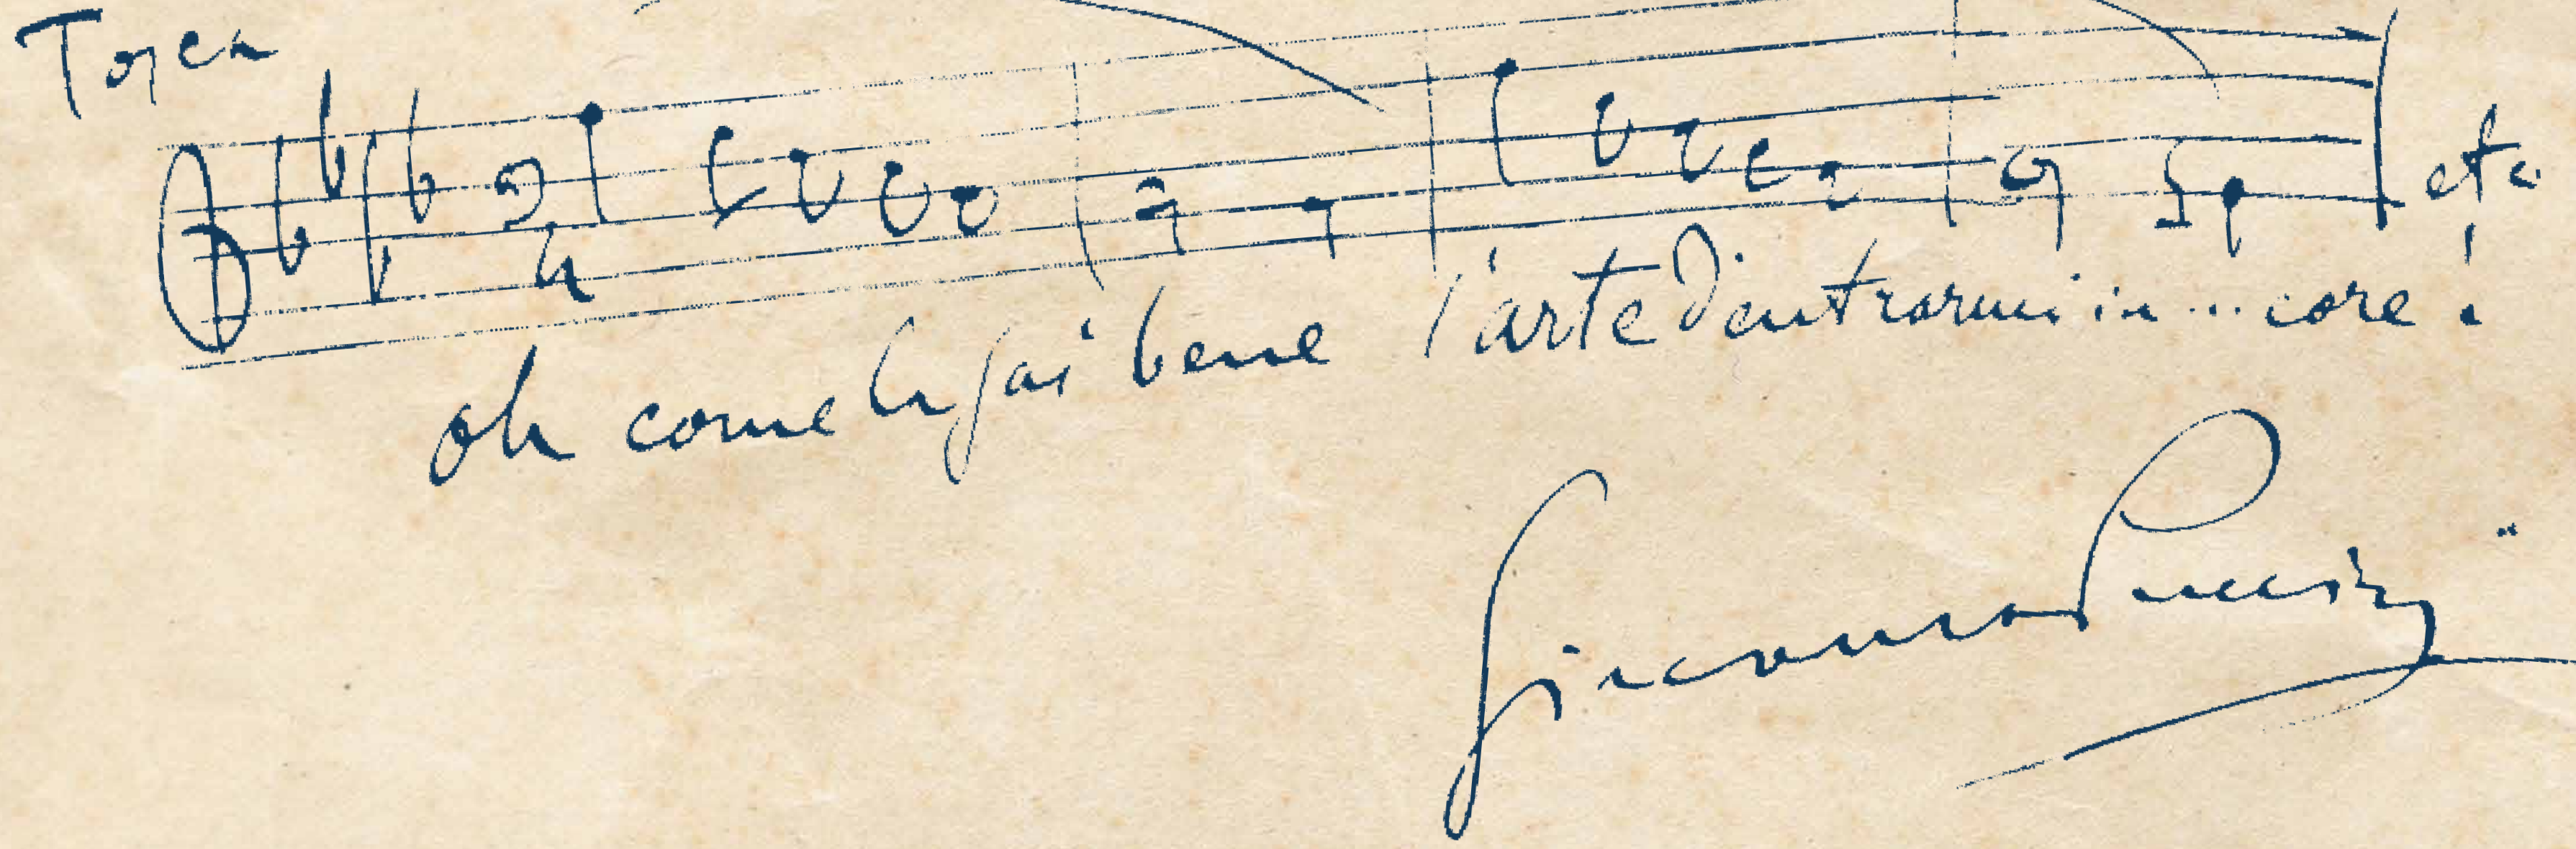 Tosca
3
4
etc
oh come la sai bene l'arte d'entrarmi in... core!
Giacomo Puccini